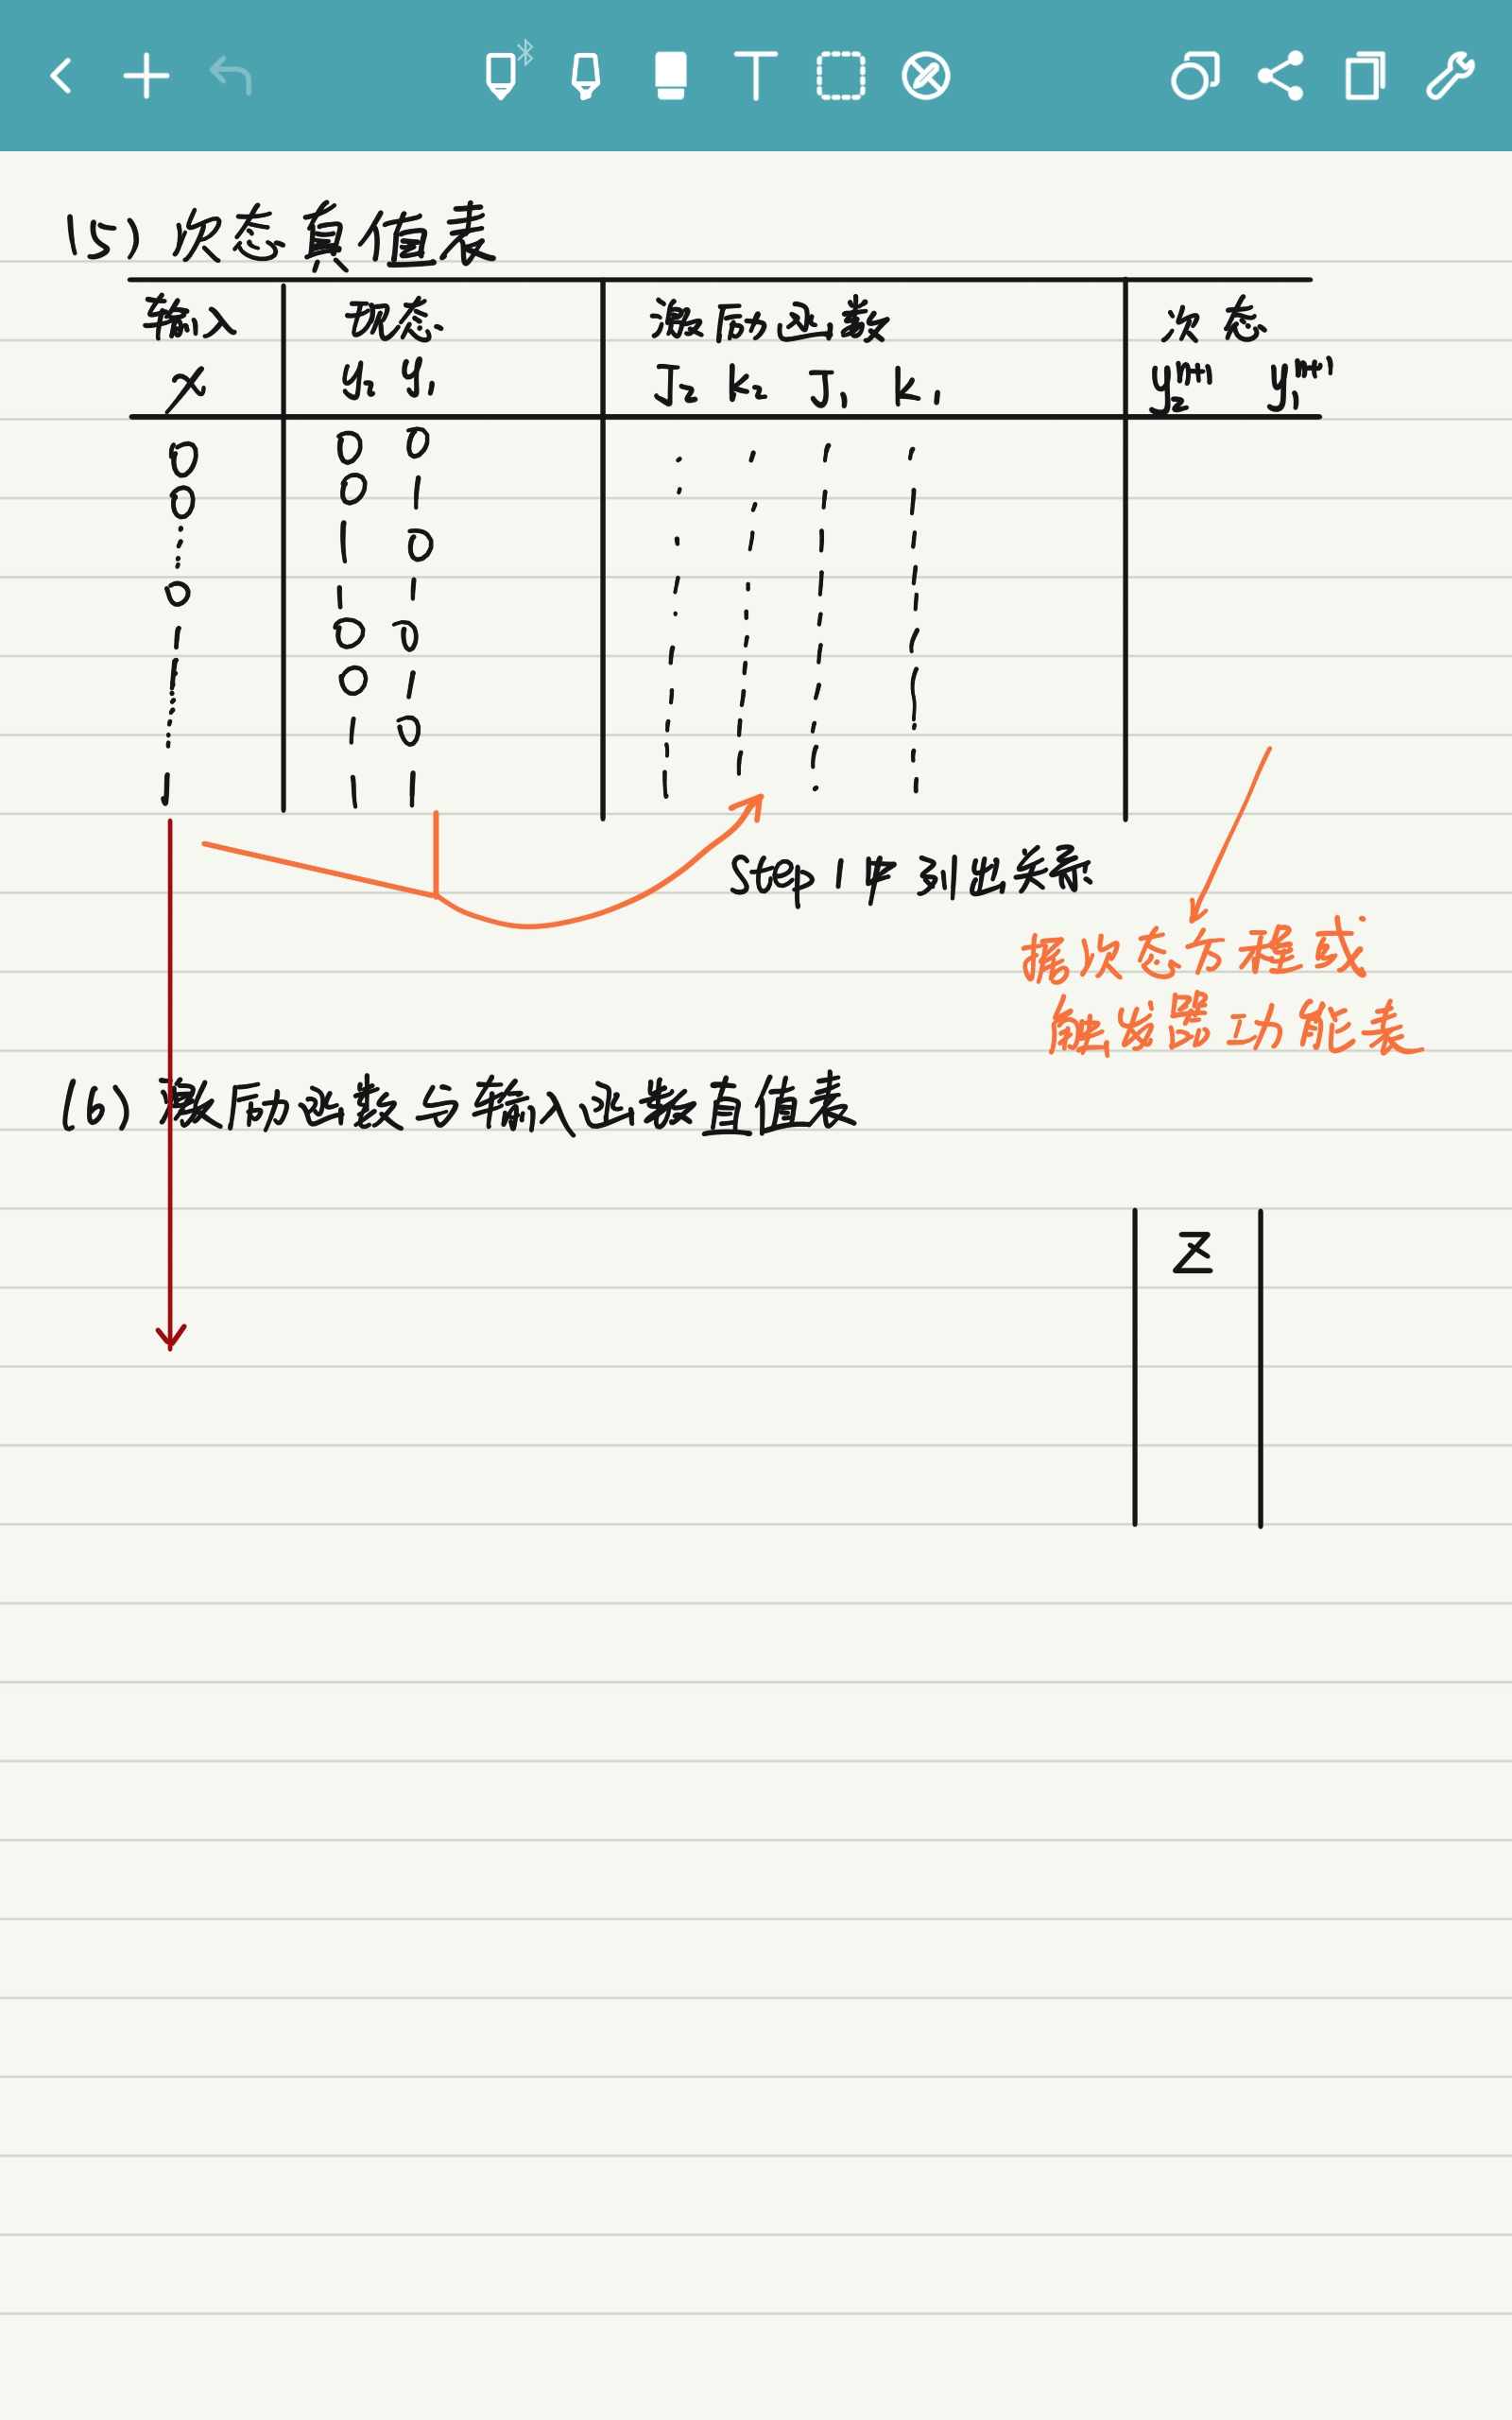 (5) 次态真值表
输入 现态 激励函数 次态
x y₂ y₁ J₂ K₂ J₁ K₁ y₂ⁿ⁺¹ y₁ⁿ⁺¹
0 0 0
0 0 1
1 0
0 1 1
1 0 0
1 0 1
1 0
1 1 1
Step 1中 列出关系
据次态方程或
触发器功能表
(6) 激励函数与输入函数真值表
Z